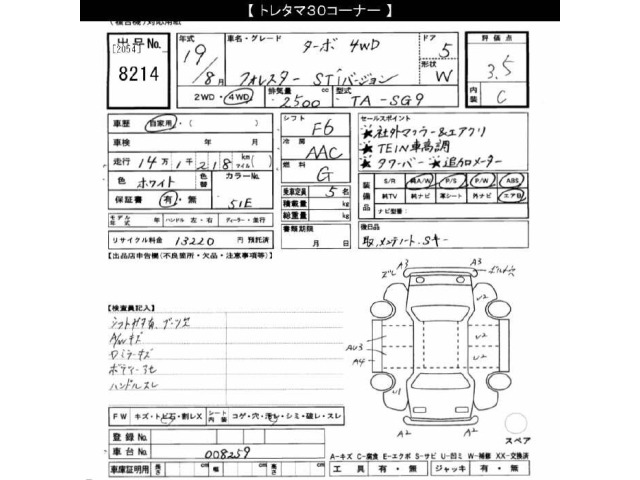 【 トレタマ30コーナー 】
出品No. [2054] 8214
年式 19/8月
車名・グレード ターボ 4WD
フォレスター STiバージョン
ドア 5
形状 W
評価点 3.5
内装 C
2WD・4WD
排気量 2500 cc
型式 TA-SG9
車歴 自家用・( )
車検 年 月
走行 14万1千218 km マイル
色 ホワイト 色替 カラーNo. 51E
保証書 有・無
モデル年式 年 ハンドル 左・右 ディーラー・並行
リサイクル料金 13220 円 預託済
シフト F6
冷房 AAC
燃料 G
乗車定員 5 名
積載量 kg
総重量 kg
書類期限 月 日
セールスポイント
★社外マフラー&エアクリ
★TEIN車高調
★タワーバー ★追加メーター
装備品 S/R 純A/W P/S P/W ABS
純TV 純ナビ 革シート 外ナビ エアB
ナビ型番:
後日品
取、メンテノート、Sキー
【出品店申告欄(不良箇所・欠品・注意事項等)】
【検査員記入】
A/Wキズ
ハンドルスレ
FW キズ・トビ石・割レX シート内装 コゲ・穴・汚レ・シミ・破レ・スレ
登録No.
車台No. 008259
車庫証明用 長さ cm 幅 cm 高さ cm
A3 A3
ズレ
U2
U2
U2
AU3
A4
U1
A2 A2
スペア
A-キズ C-腐食 E-エクボ S-サビ U-凹ミ W-補修 XX-交換済
工具 有・無 ジャッキ 有・無